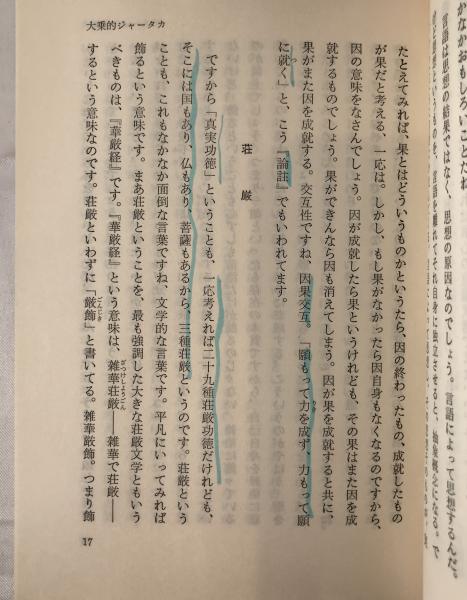 かなかおもしろいことだね
言語は思想の結果ではなく、思想の原因なのでしょう。言語によって思想するんだ。
大乗的ジャータカ
たとえてみれば、果とはどういうものかというたら、因の終わったもの、成就したもの
が果だと考える、一応は。しかし、もし果がなかったら因自身もなくなるのですから、
因の意味をなさんでしょう。因が成就したら果というけれども、その果はまた因を成
就するものでしょう。果ができんなら因も消えてしまう。因が果を成就すると共に、
果がまた因を成就する。交互性ですね、因果交互。「願もって力を成ず、力もって願
に就く」と、こう『論註』でもいわれてます。
荘厳
ですから「真実功徳」ということも、一応考えれば二十九種荘厳功徳だけれども、
そこには国もあり、仏もあり、菩薩もあるから、三種荘厳というのです。荘厳という
ことも、これもなかなか面倒な言葉ですね、文学的な言葉です。平凡にいってみれば
飾るという意味です。まあ荘厳ということを、最も強調した大きな荘厳文学ともいう
べきものは、『華厳経』です。『華厳経』という意味は、雑華荘厳――雑華で荘厳――
するという意味なのです。荘厳といわずに「厳飾」と書いてる。雑華厳飾。つまり飾
17